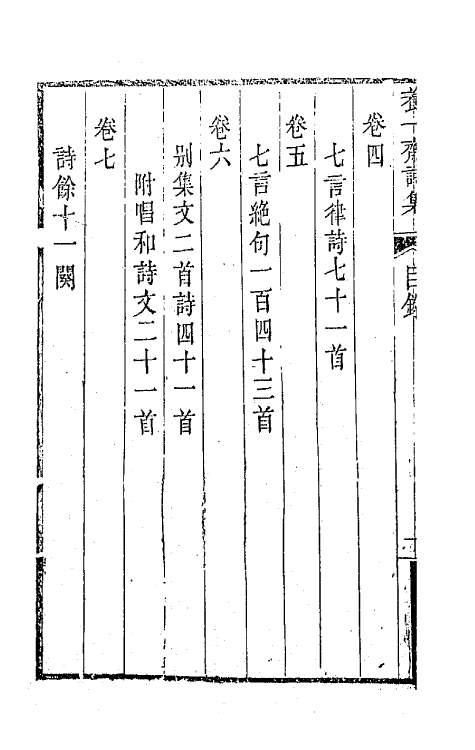 養一齋詩集 目錄
卷四
七言律詩七十一首
卷五
七言絶句一百四十三首
卷六
别集文二首詩四十一首
附唱和詩文二十一首
卷七
詩餘十一闋